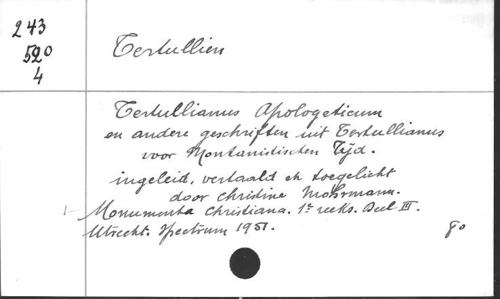 243
520
4
Tertullien
Tertullianus Apologeticum
en andere geschriften uit Tertullianus
voor Montanistischen Tijd.
ingeleid, vertaald en toegelicht
door Christine Mohrmann.
Monumenta Christiana. 1e reeks. Deel III.
Utrecht. Spectrum 1951. 8o